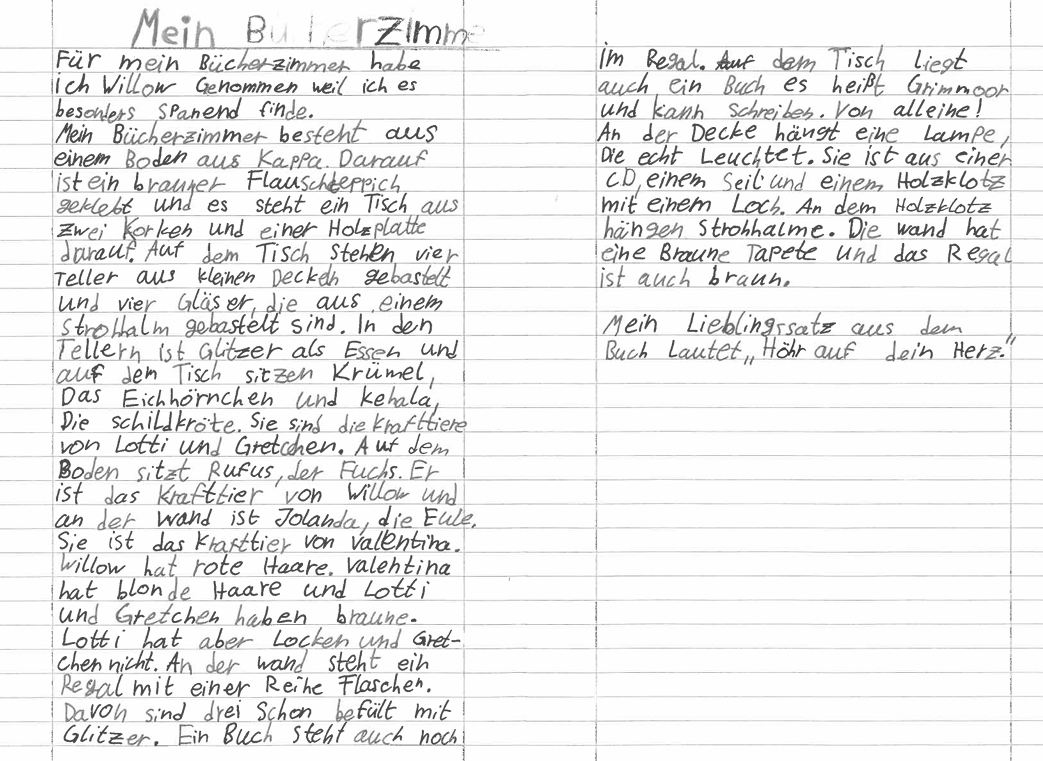 Mein Bücherzimmer
Für mein Bücherzimmer habe
ich Willow Genommen weil ich es
besonders spanend finde.
Mein Bücherzimmer besteht aus
einem Boden aus Kappa. Darauf
ist ein brauner Flauschteppich
geklebt und es steht ein Tisch aus
zwei Korken und einer Holzplatte
darauf. Auf dem Tisch Stehen vier
Teller aus kleinen Deckeln gebastelt
und vier Gläser, die aus einem
Strohhalm gebastelt sind. In den
Tellern ist Glitzer als Essen und
auf dem Tisch sitzen Krümel,
Das Eichhörnchen und kehala,
Die schildkröte. Sie sind die krafttiere
von Lotti und Gretchen. Auf dem
Boden sitzt Rufus, der Fuchs. Er
ist das Krafttier von Willow und
an der Wand ist Jolanda, die Eule.
Sie ist das Krafttier von Valentina.
Willow hat rote Haare. Valentina
hat blonde Haare und Lotti
und Gretchen haben braune.
Lotti hat aber Locken und Gret-
chen nicht. An der wand steht ein
Regal mit einer Reihe Flaschen.
Davon sind drei Schon befült mit
Glitzer. Ein Buch Steht auch noch
im Regal. Auf dem Tisch liegt
auch ein Buch es heißt Grimmoor
und kann schreiben. Von alleine!
An der Decke hängt eine Lampe,
Die echt Leuchtet. Sie ist aus einer
CD, einem Seil und einem Holzklotz
mit einem Loch. An dem Holzklotz
hängen Strohhalme. Die wand hat
eine Braune Tapete und das Regal
ist auch braun.
Mein Lieblingssatz aus dem
Buch Lautet „Höhr auf dein Herz."